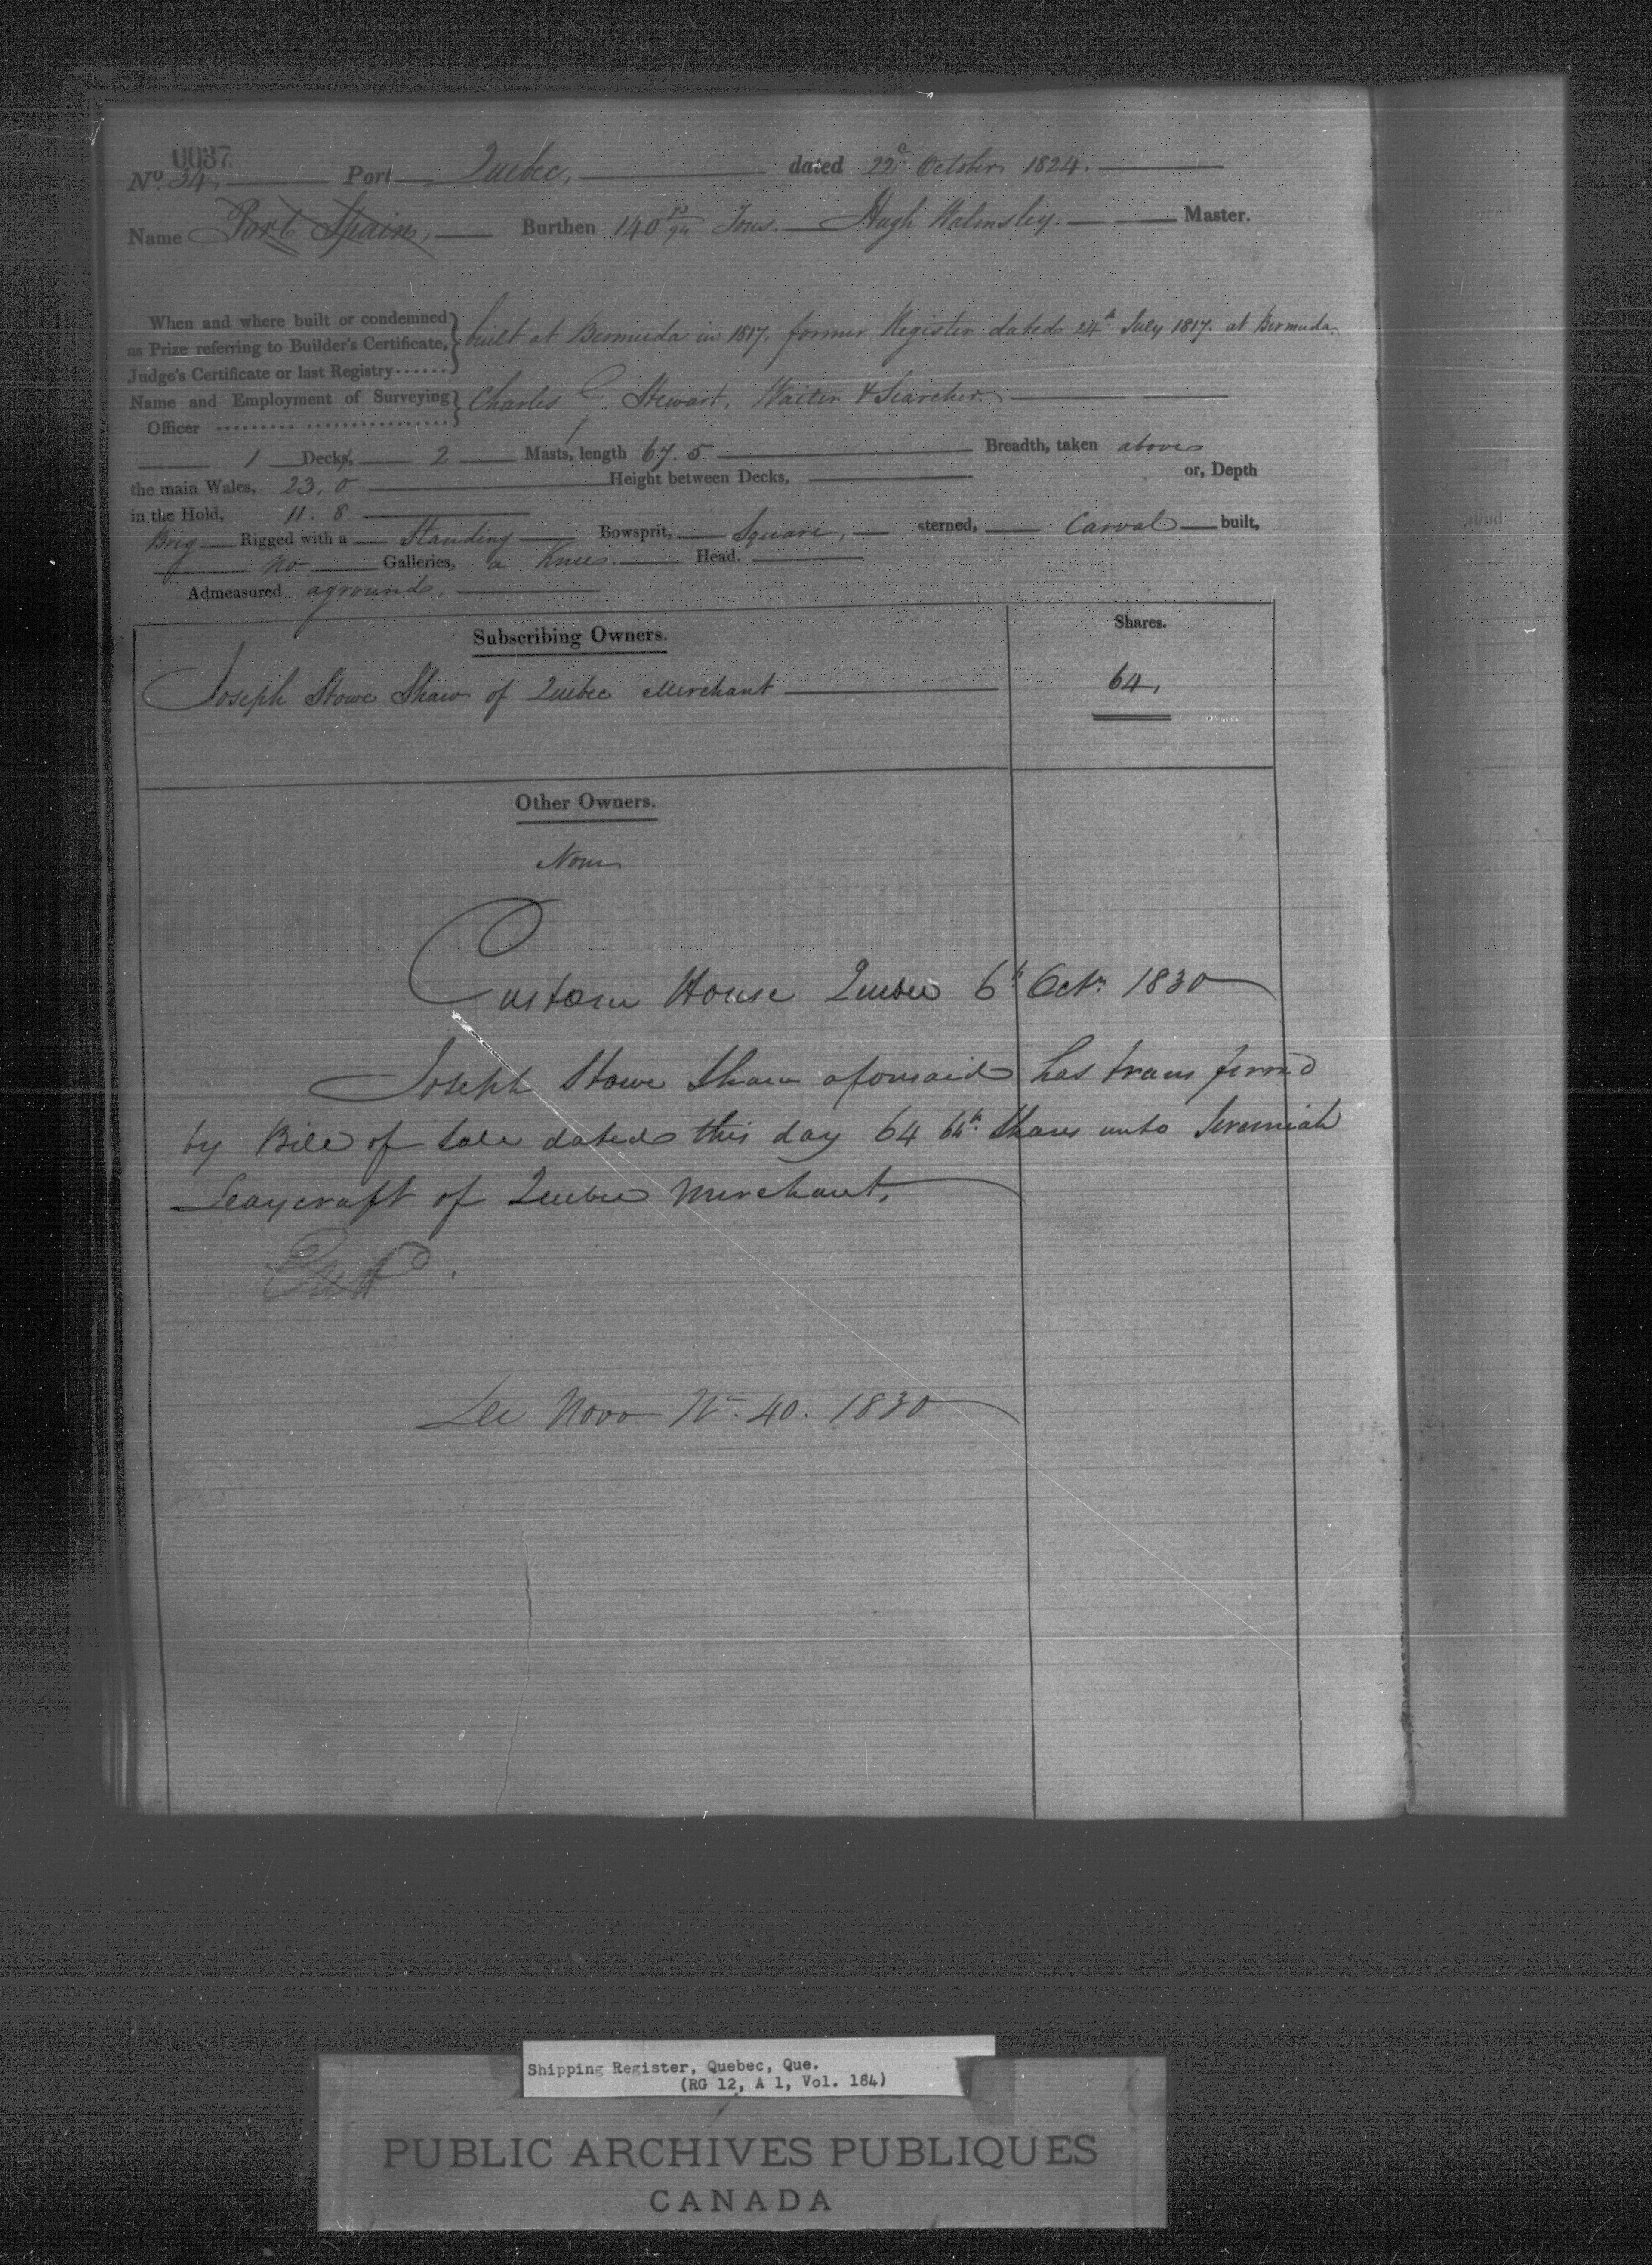 0037
No. 34, Port Quebec, dated 22d October 1824.
Name Port Spain, Burthen 140 13/94 Tons. Hugh Walmsley. Master.
When and where built or condemned
as Prize referring to Builder's Certificate, built at Bermuda in 1817. former Register dated 24th July 1817. at Bermuda.
Judge's Certificate or last Registry ......
Name and Employment of Surveying Charles G. Stewart, Waiter & Searcher.
Officer ......... ................
1 Decks, 2 Masts, length 67.5 Breadth, taken above
the main Wales, 23,0 Height between Decks, or, Depth
in the Hold, 11.8
Brig Rigged with a Standing Bowsprit, Square, sterned, Carval built,
no Galleries, a Knee. Head.
Admeasured aground,
Subscribing Owners. Shares.
Joseph Stowe Shaw of Quebec Merchant 64,
Other Owners.
None
Custom House Quebec 6th Octr. 1830
Joseph Stowe Shaw aforesaid has transferred
by Bill of Sale dated this day 64 64th. Shares unto Jeremiah
Leaycraft of Quebec Merchant,
See Novo No. 40. 1830
built,
Shipping Register, Quebec, Que.
(RG 12, A 1, Vol. 184)
PUBLIC ARCHIVES PUBLIQUES
CANADA